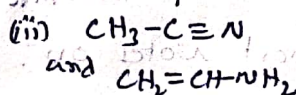 (iii) CH₃-C≡N,
and
CH₂=CH-NH₂